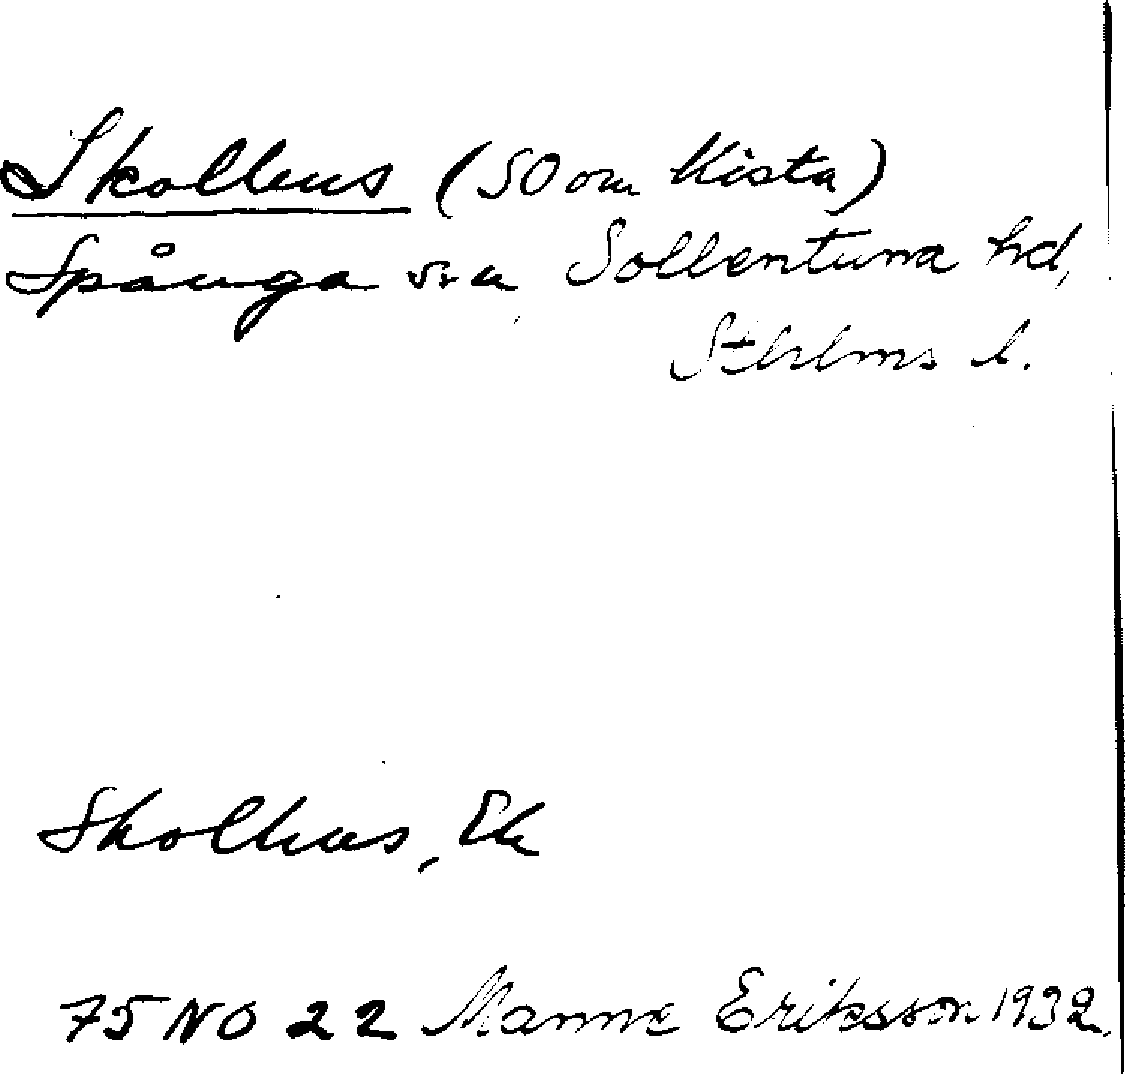 Skolhus (SO om Kista)
Spånga sn, Sollentuna hd,
Sthlms l.
Skolhus, Ek
75 NO 22 Manne Eriksson 1932.